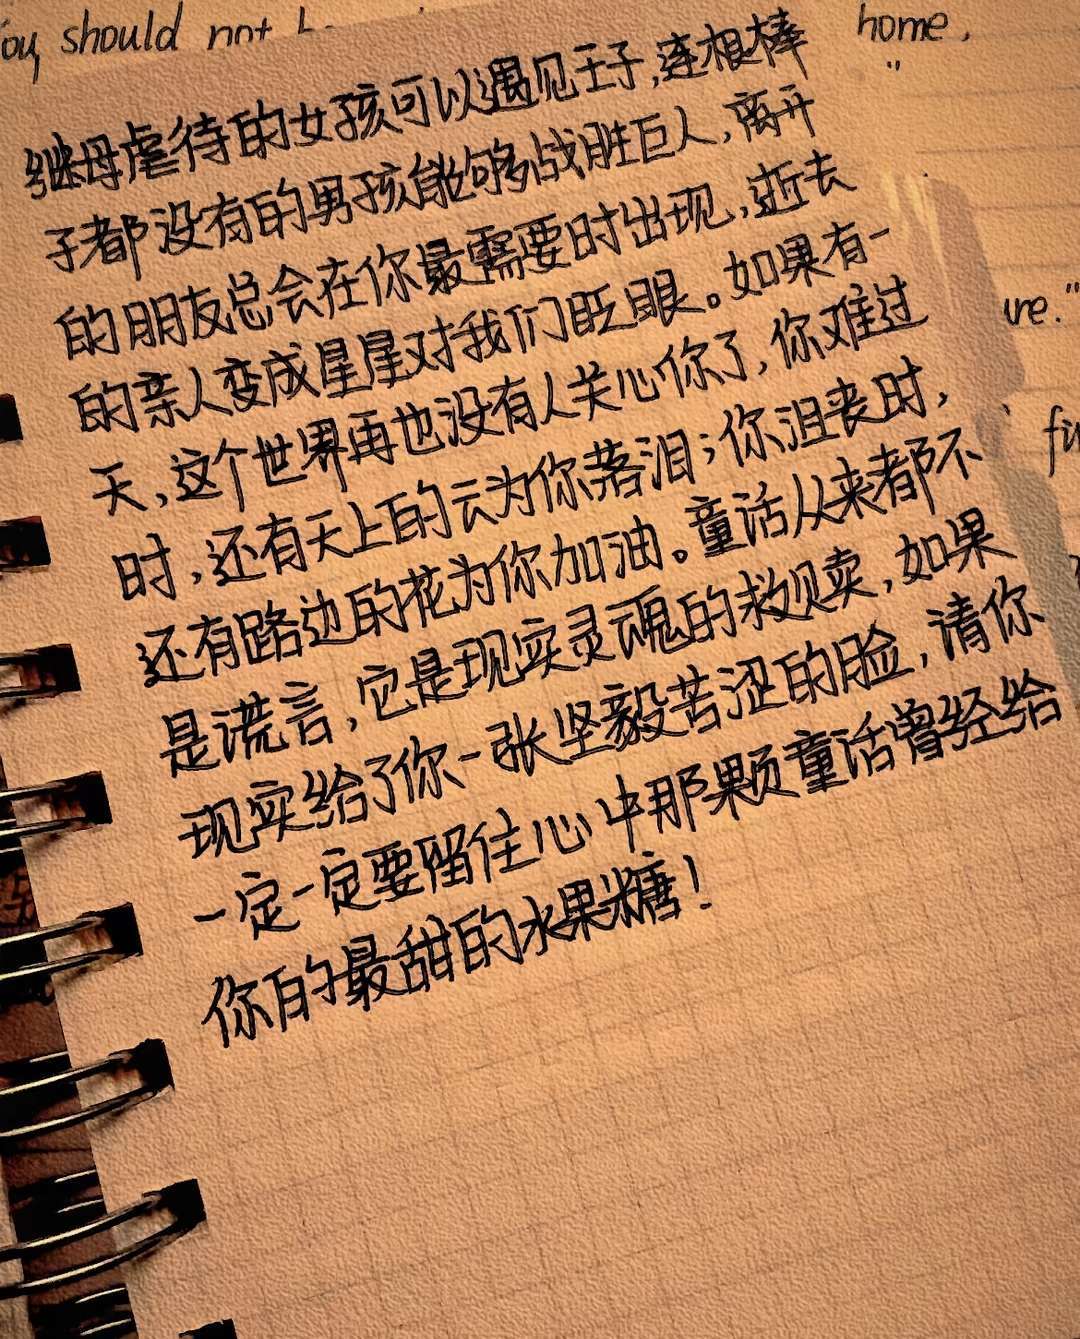 You should not
home.
"
继母虐待的女孩可以遇见王子,连根棒
子都没有的男孩能够战胜巨人,离开
的朋友总会在你最需要时出现,逝去
的亲人变成星星对我们眨眼。如果有一
天,这个世界再也没有人关心你了,你难过
时,还有天上的云为你落泪;你沮丧时,
还有路边的花为你加油。童话从来都不
是谎言,它是现实灵魂的救赎,如果
现实给了你一张坚毅苦涩的脸,请你
一定一定要留住心中那颗童话曾经给
你的最甜的水果糖!